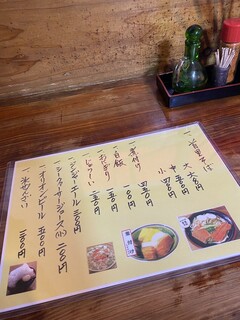 一、首里そば
大 六〇〇円
中 五〇〇円
小 四〇〇円
一、煮付け 四五〇円
一、白飯 一〇〇円
一、おにぎり 一五〇円
一、じゅーしー 二五〇円
一、ジンジャーエール 三〇〇円
一、シークヮーサージュース(小) 二〇〇円
一、オリオンビール 五〇〇円
一、氷ぜんざい 三〇〇円
煮付け